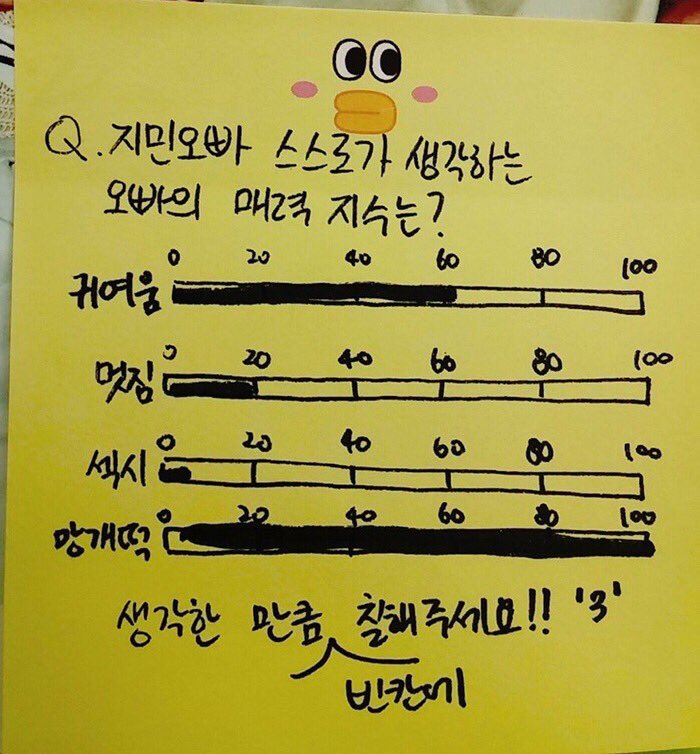 Q. 지민오빠 스스로가 생각하는
오빠의 매력 지수는?
0 20 40 60 80 100
귀여움
0 20 40 60 80 100
멋짐
0 20 40 60 80 100
섹시
0 20 40 60 80 100
망개떡
생각한 만큼 칠해주세요!! '3'
빈칸에